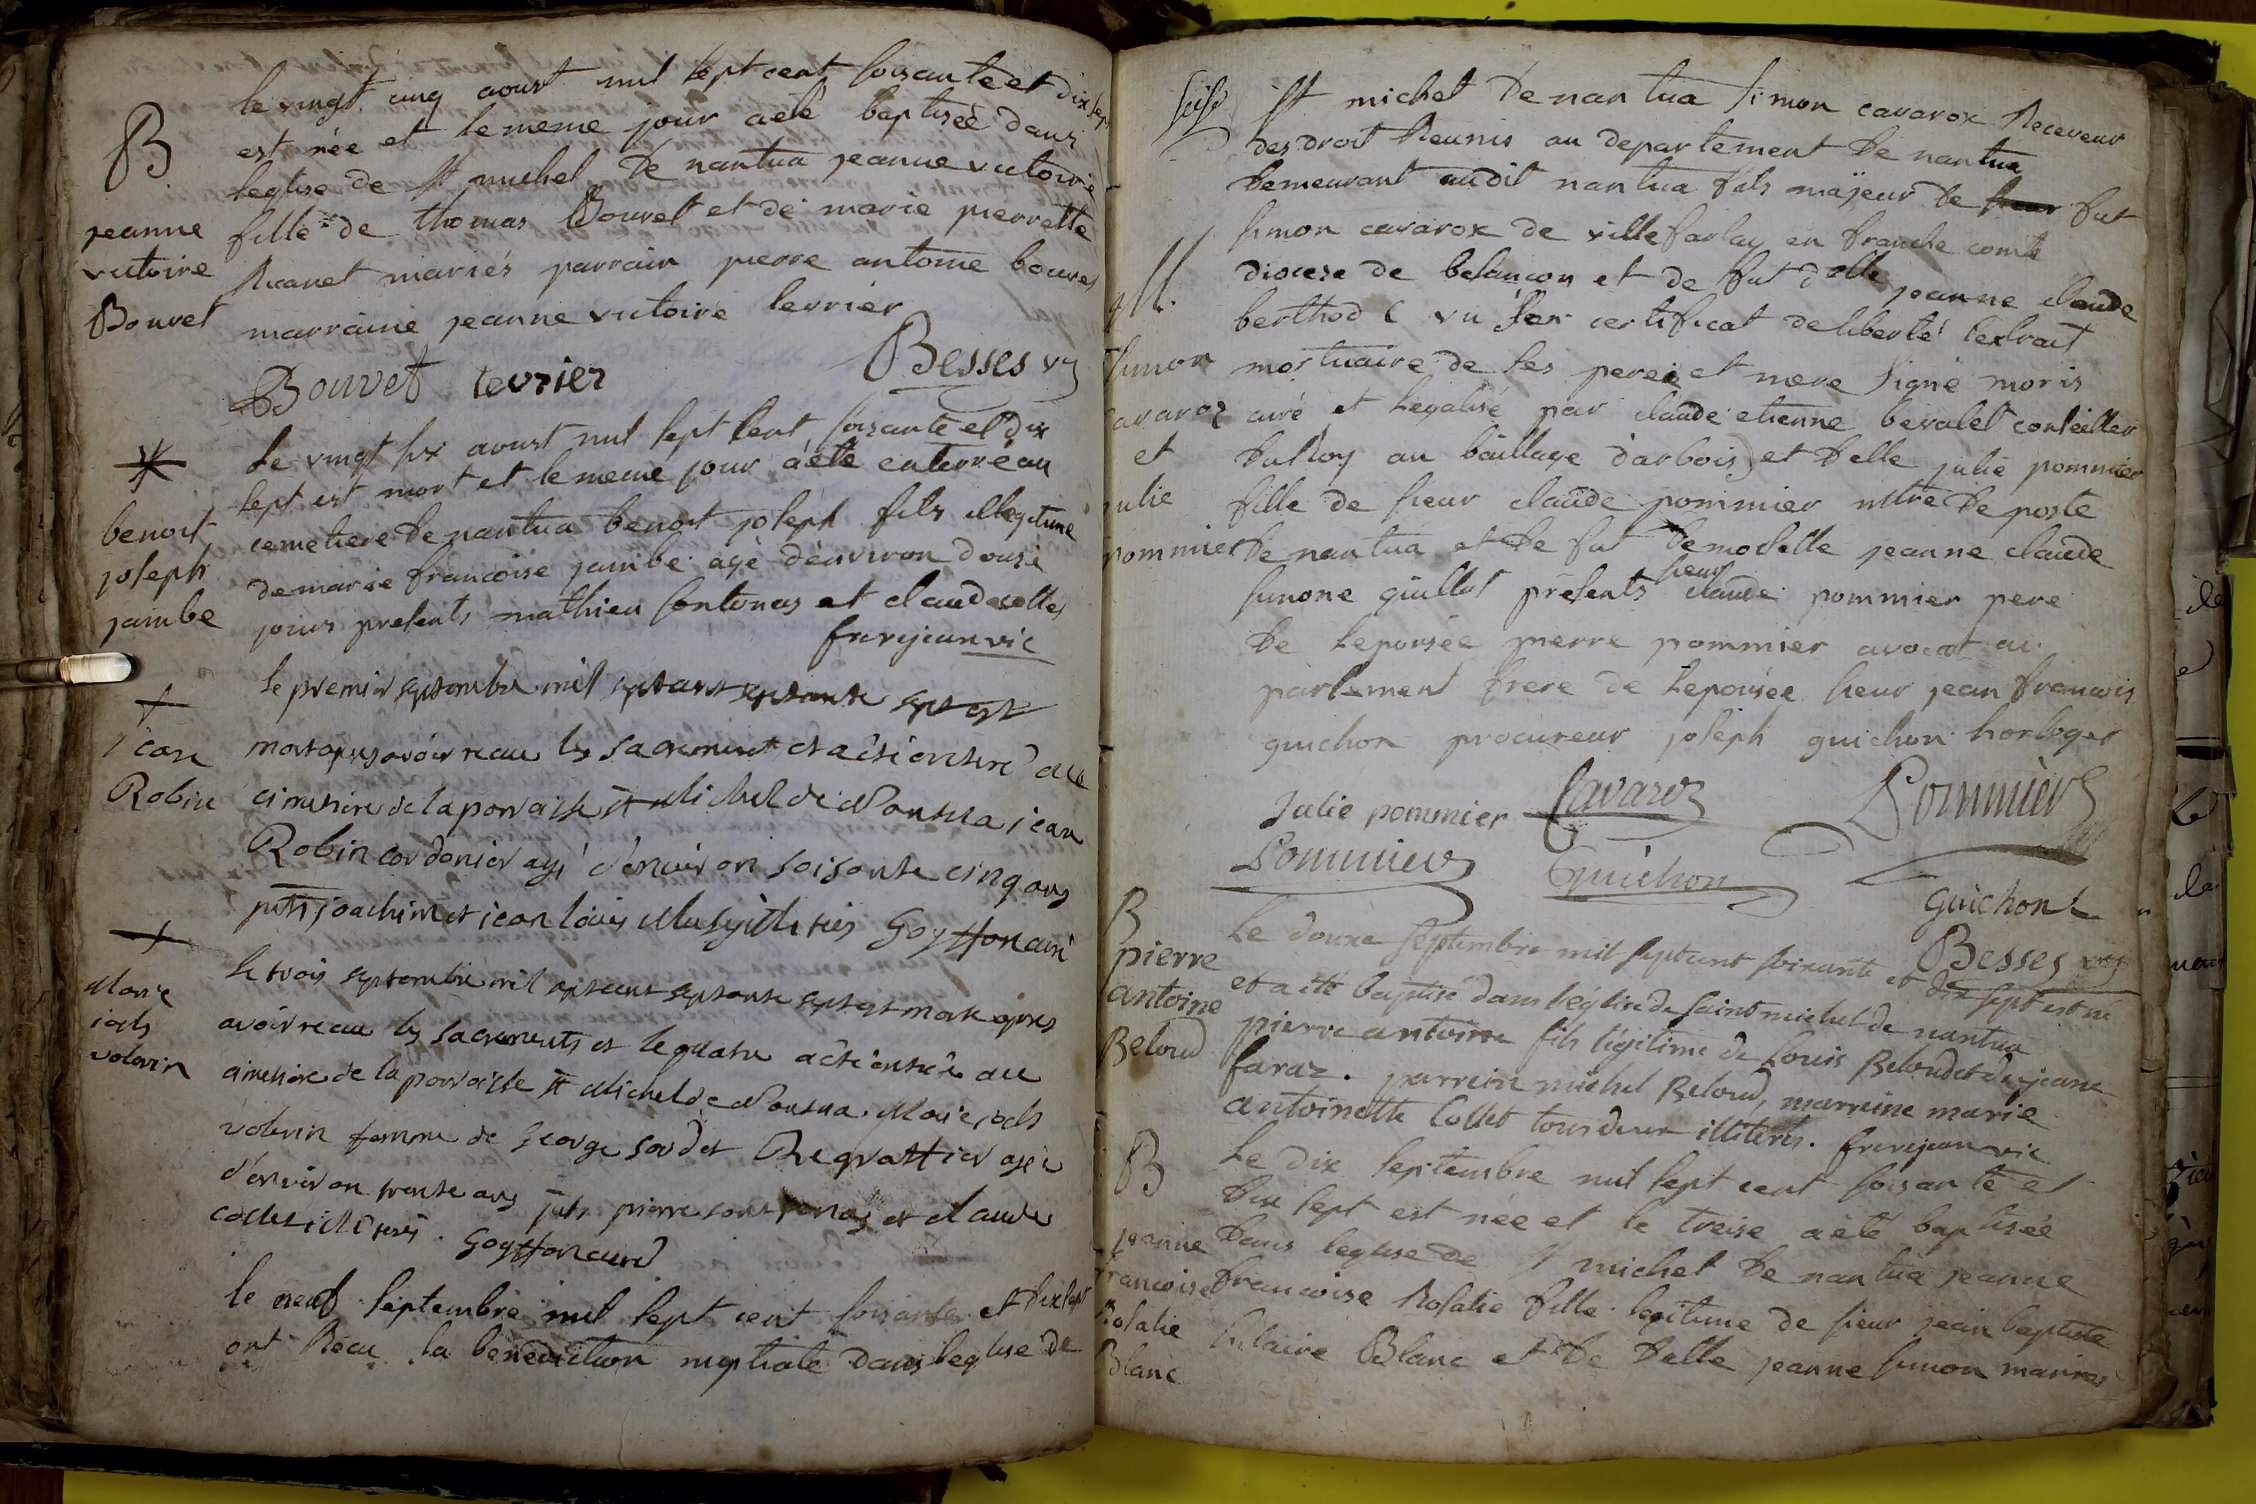 B
jeanne
victoire
Bouvet
le vingt cinq aoust mil sept cent soisante et dix sept
est née et le meme jour a eté baptiseé dans
leglise de st michel de nantua jeanne victoire
fille de thomas Bouvet et de marie pierrette
mariés parrain pierre antoine bouvet
marraine jeanne victoire
Bouvet tevrier Besses
benoit
joseph
jambe
Le vingt six aoust mil sept cent soisante et dix
sept est mort et le meme jour a eté enterré au
cemetiere de nantua benoit joseph fils illegitime
de marie francoise jambe agé denviron dousé
jours presents mathieu et claude collet
frerejean vic
jean
Robin
le premier septembre mil septcent septante sept est
mort apres avoir recu les sacrement et a été enterré au
cimetiere de la parroisse st Michel de Nantua jean
Robin cordonier agé d'environ soisante cinq ans
pnts joachim et jean louis illiterés Goyffon curé
Marie
volerin
le trois septembre mil septcent septante sept est morte apres
avoir recu les sacrements et le quatre a été enterée au
cimetiere de la parroisse st Michel de Nantua Marie
volerin femme de George sordet agée
d'environ trente ans pnts pierre et claude
collet illiterés. Goyffon curé
le neuf septembre mil sept cent soisante et dix sept
ont Recu la benediction nuptiale dans leglise de
st michel de nantua simon cavaroz Receveur
des droit Reunis au departement de nantua
demeurant audit nantua fils majeur de fut
simon cavaroz de villefarlay en franche comté
diocese de besancon et de fut delle jeanne claude
berthod ( vu son certificat de liberté lextrait
mortuaire de ses pere et mere signé moris
curé et legalisé par claude etienne bevalet conseiller
du Roy au baillage d'arbois) et delle julie pommier
fille de sieur claude pommier mtre de poste
de nantua et de fut demoiselle jeanne claude
simone guillot présents sieur claude pommier pere
de lepousée pierre pommier avocat au
parlement frere de lepousée sieur jean francois
guichon procureur joseph guichon horloger
simon
cavaroz
et
julie
pommier
Julie pommier Cavaroz Pommier
Pommier Guichon
Guichon
Besses
B
pierre
antoine
Beloud
Le douze septembre mil septcent soixante et dix sept est né
et a eté baptisé dans l'église de saint michel de nantua
pierre antoine fils légitime de louis Beloud et de jeane
faraz. parrein michel Beloud, marreine marie
antoinette Collet tous deux illiterés. frerejean vic
B
jeanne
francoise
Rosalie
Blanc
Le dix septembre mil sept cent soisante et
dix sept est née et le treise a eté baptisée
dans leglise de st michel de nantua jeanne
francoise Rosalie fille legitime de sieur jean baptiste
hilaire Blanc et de delle jeanne simon mariés